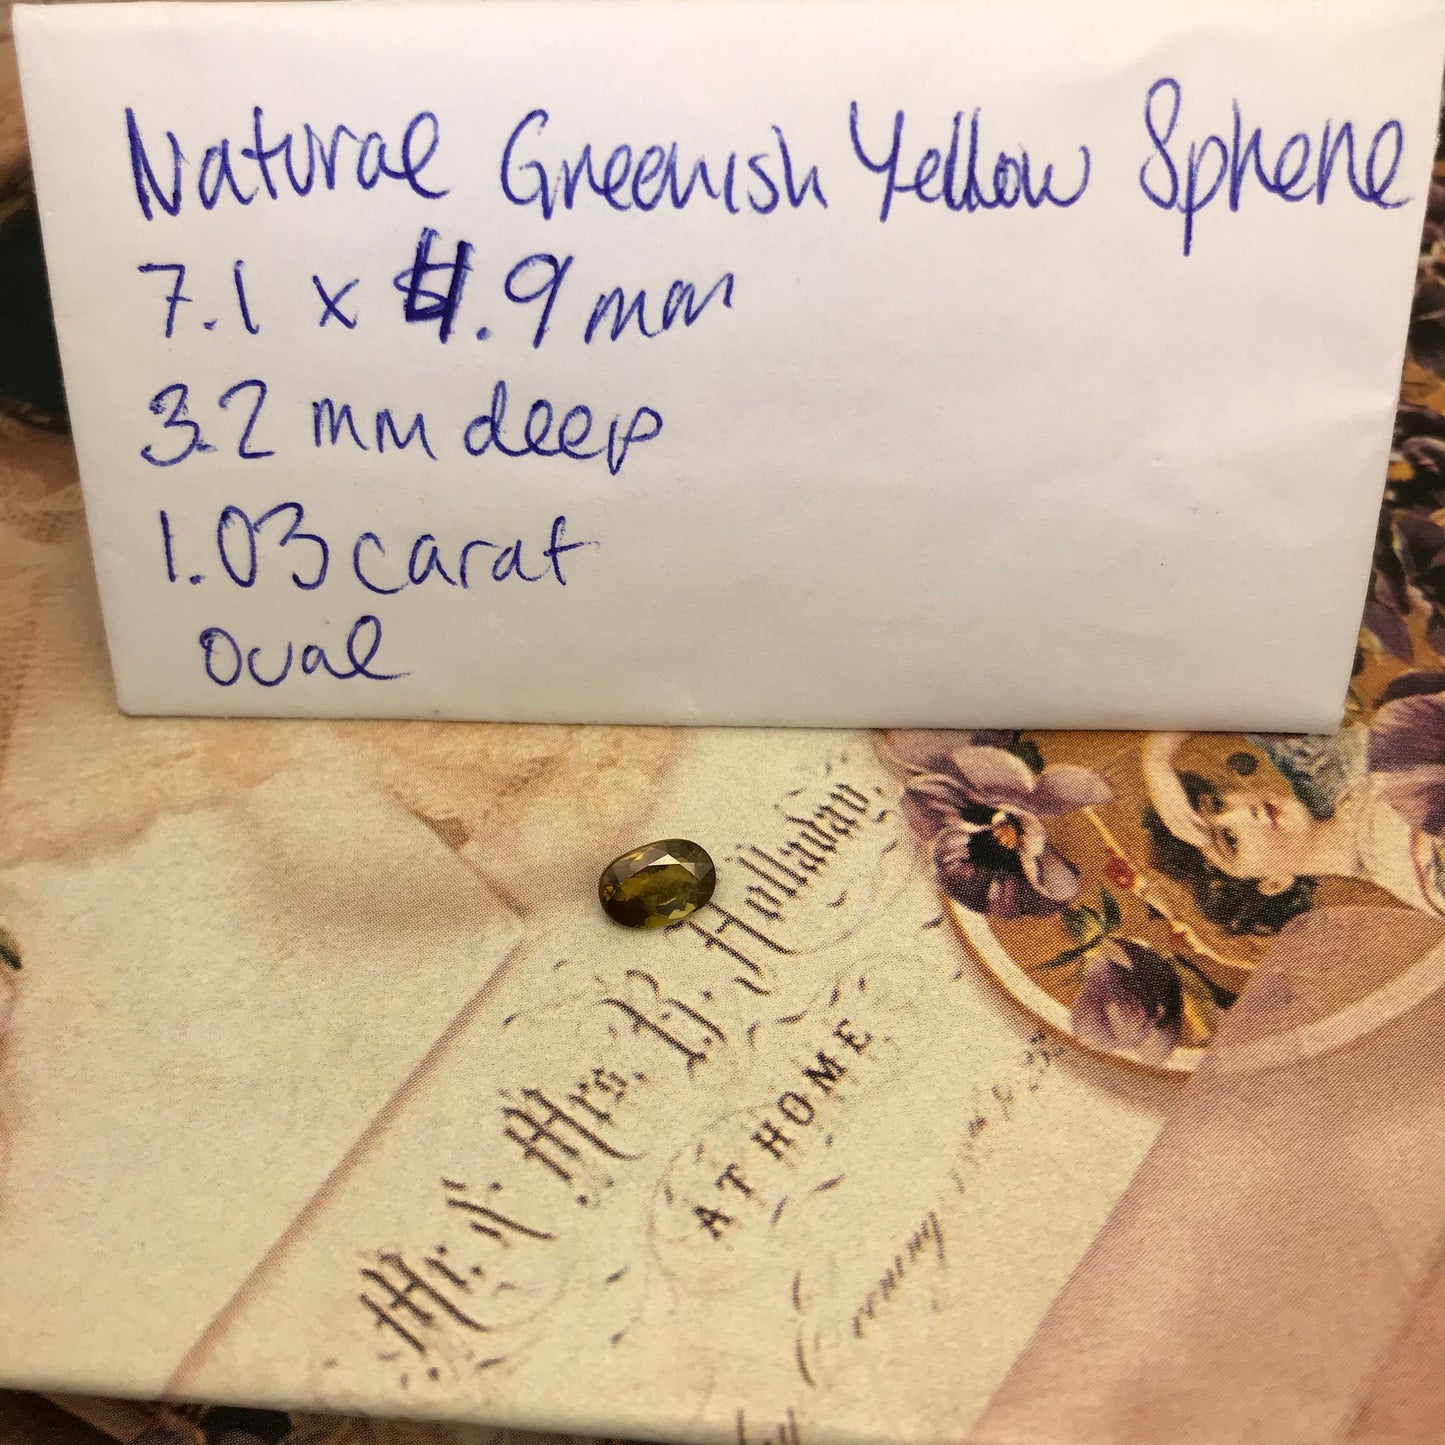 Natural Greenish Yellow Sphene
7.1 x 4.9 mm
3.2 mm deep
1.03 carat
Oval
Mr. & Mrs. B. Holladay.
AT HOME